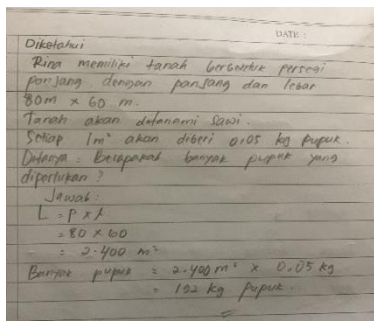 DATE :
Diketahui
Rina memiliki tanah berbentuk persegi
panjang dengan panjang dan lebar
80m x 60 m.
Tanah akan ditanami sawi.
Setiap 1m² akan diberi 0,05 kg pupuk.
Ditanya : Berapakah banyak pupuk yang
diperlukan ?
Jawab :
L = P x l
= 80 x 60
= 2.400 m²
Banyak pupuk = 2.400 m² x 0.05 kg
= 192 kg pupuk.